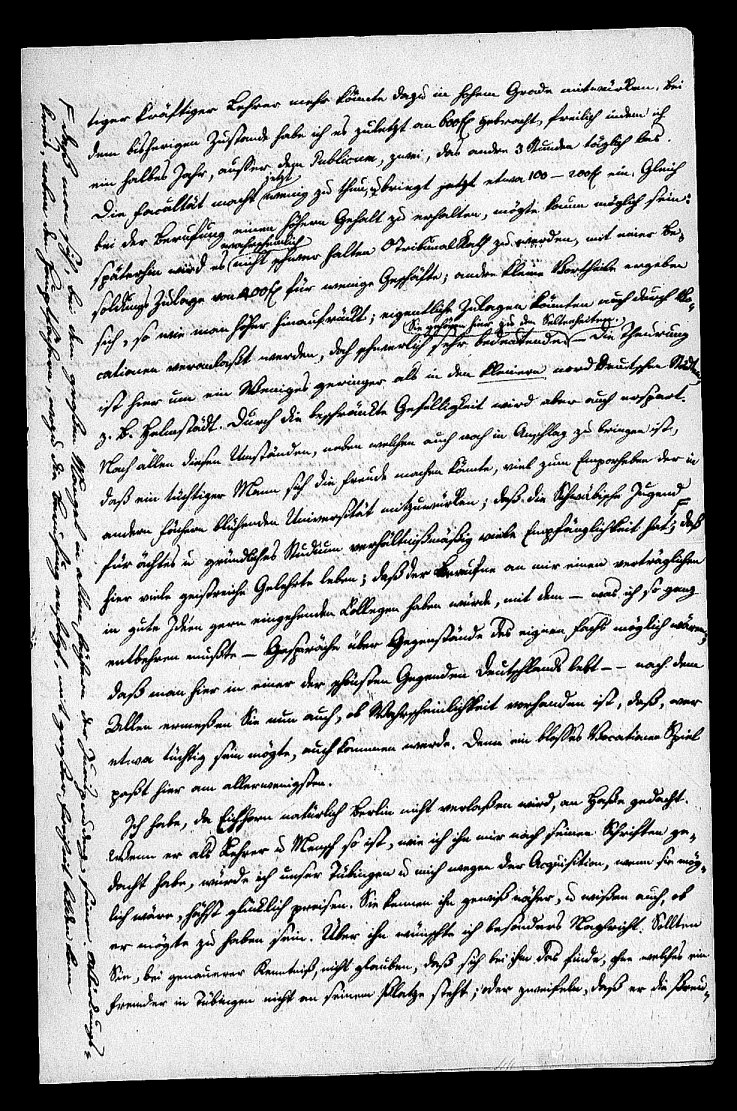 tiger kräftiger Lehrer mehr könnte dazu in hohem Grade mitwürken. Bei
dem bisherigen Zustande habe ich es zuletzt an 600 gebracht, freilich indem ich
ein halbes Jahr, ausser dem Publicum, zwei, das andre 3 Stunden täglich las.
Die Facultät macht jetzt wenig zu thun, u bringt jetzt etwa 100 – 200 ein. Gleich
bei der Berufung einen höhern Gehalt zu erhalten, mögte kaum möglich sein:
späterhin wird es wahrscheinlich nicht schwer halten OTribunalRath zu werden, mit einer Be-
soldungs Zulage von 400 für wenige Geschäfte; andre kleine Vortheile ergeben
sich, so wie man höher hinaufrückt; eigentliche Zulagen könnten noch durch Vo-
cationen veranlaßt werden, doch schwerlich sehr bedeutende – Sie gehören hier zu den Seltenheiten. Die Theurung
ist hier um ein Weniges geringer als in den kleinern nord Deutschen Städten
z. B. Helmstädt. Durch die beschränkte Geselligkeit wird aber auch erspart.
Nach allen diesen Umständen, neben welchen auch noch in Anschlag zu bringen ist,
daß ein tüchtiger Mann sich die Freude machen könnte, viel zum Emporheben der in
andern Fächern blühenden Universität mitzuwürken; daß die Schwäbische Jugend
für ächtes u gründliches Studium verhältnißmäßig viele Empfänglichkeit hat; daß
hier viele geistreiche Gelehrte leben; daß der Berufne an mir einen verträglichen
in gute Ideen gern eingehenden Collegen haben würde, mit dem – was ich so ganz
entbehren mußte – Gespräche über Gegenstände des eignen Fachs möglich wären;
daß man hier in einer der schönsten Gegenden Deutschlands lebt – – nach dem
Allen ermeßen Sie nun auch, ob Wahrscheinlichkeit vorhanden ist, daß, wer
etwa tüchtig sein mögte, auch kommen werde. Denn ein blosses Vocationen Spiel
paßt hier am allerwenigsten.
Ich habe, da Eichhorn natürlich Berlin nicht verlaßen wird, an Haße gedacht.
Wenn er als Lehrer u Mensch so ist, wie ich ihn mir nach seinen Schriften ge-
dacht habe, würde ich unser Tübingen u mich wegen der Acquisition, wenn sie mög-
lich wäre, höchst glücklich preisen. Sie kennen ihn gewiß näher, u wißen auch, ob
er mögte zu haben sein. Über ihn wünschte ich besonders Nachricht. Sollten
Sie, bei genauerer Kenntniß, nicht glauben, daß sich bei ihm das finde, ohne welches ein
Fremder in Tübingen nicht an seinem Platze steht; oder zweifeln, daß er die Preu-
daß man sich, bei dem großen Mangel in allen